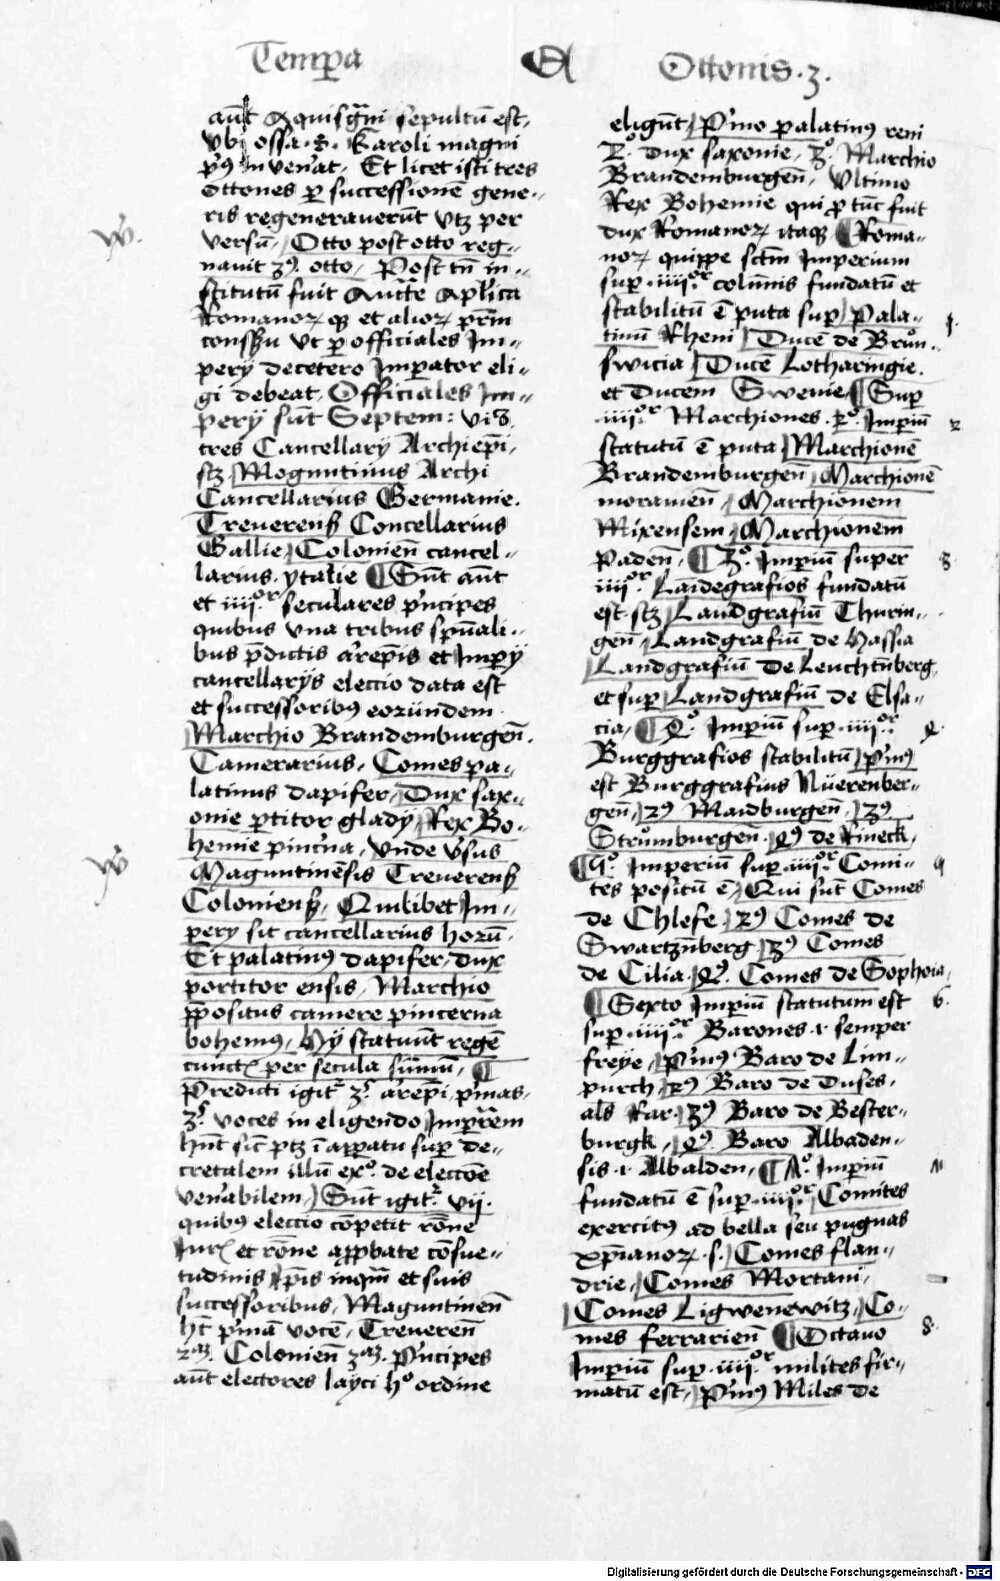 Temp̲a
Ottonis · 3 ·
aūt Aquisgᷓni sepultū est,
vbi ossa · S · Karoli magni
p'9 inven'at, Et licet isti tres
Ottones p̲ successionē gene-
ris regeneraverūt vtz per
versū, Otto post otto reg-
navit 39 otto, Post tn̄ in-
stitutū fuit Aucte Aplica
Romanoꝝ qz et alioꝝ p̲rm
vt p̲ officiales Im-
pery decetero Imp̲ator eli-
gi debeat, Officiales Im-
pery sūt Septem: viꝫ
tres Cancellary Archiep̄i
scz Moguntinus Archi
Cancellarius Germanie.
Treuerenß Concellarius
Gallie, Colonien̄ cancel-
larius · ytalie ¶ Sūt aūt
et iiii.or seculares p'ncipes
quibus vna tribus sp̄uali-
bus p̄dictis ar̄ep̄is et Impery
cancellarys eleccio data est
et successorib9 eorundem
Marchio Brandemburgen̄.
Camerarius, Comes pa-
latinus dapifer, Dux sax-
onie p̲titor glady, Rex Bo-
hemie pincn̄a, vnde v̄sus
Maguntinēsis Treuerenß
Colonienß, Quilibet Im-
pery sit cancellarius horū,
Et palatin9 dapifer, dux
portitor ensis, Marchio
p̲positus camere pincerna
bohem9, Hy statuūt regē
cunctꝭ per secula sūmū, ¶
Predicti igit' 3s ar̄ep̄i, p'mas,
3s voces in eligendo Imp̲rem
hn̄t sic̄ ptz ī app̲atu sup̲ de-
cretalem illū exo. de eleccōe
ven'abilem, Sūt igit' vii.
quib9 eleccio cōpetit rōne
Jurꝭ et rōne app̲bate cōsue-
tudinis, p̄is inqm̄ et suis
successoribus, Maguntinen̄
ht̄ p'mā vocē, Treueren̄
2az. Colonien̄ 3az. P'ncipes
aūt electores layci ho ordine
eligūt, P'mo palatin9 reni
2.o dux saxonie, 3.o Marchio
Brandemburgen̄, Vltimo
Rex Bohemie qui p̲ tūc fuit
dux Romanoꝝ itaqz ¶ Roma-
noꝝ quippe sctm̄ Imperium
sup̲ · iiii.or colūnis fundatū et
stabilitū ē puta sup̲, Pala-
tinū Rheni, Ducē de Brůn-
swicia, Ducē Lotharingie,
et Ducem Swevie, ¶ Sup̲
· iiii.or Marchiones · 2.o Imp̲iū
statutū ē puta, Marchionē
Brandemburgen̄, Marchionē
moravien̄, Marchionem
Mixensem, Marchionem
Paden̄, ¶ 3.o Imp̲iū super
iiii.or Landegrafios fundatū
est · scz, Landgrafiū Thurin-
gen̄, Landgrafiū de Hassia
Landgrafiū de Leuchtn̄berg,
et sup̲, Landgrafiū de Elsa-
cia, ¶ 4.o Imp̲iū sup̲ · iiii.or
Burggrafios stabilitū, P'm9
est Burggrafius Nüerenber-
gen̄, 29 Maidburgen̄, 39
Strůmburgen̄, 49 de Rineck,
¶ 5.o Imperiū sup̲ · iiii.or Comi-
tes positū ē, Qui sūt Comes
de Chlefe, 29 Comes de
Swartzn̄berg, 39 Comes
de Cilia, 49. Comes de Sophoia,
¶ Sexto Imp̲iū statutum est
sup̲ · iiii.or Barones · r semper
freye, P'm9 Baro de Lim-
purch, 29 Baro de Duses,
als Rar, 39 Baro de Bester-
burgk, 49. Baro Albaden-
sis · r Albalden, ¶ 7.o Imp̲iū
fundatū ē sup̲ · iiii.or, Comites
exercit9 ad bella seu pugnas
xp̄ianoꝝ · s · Comes flan-
drie, Comes Mortani,
Comes Ligwenewitz, Co-
mes ferrarien̄ ¶ Octavo
Imp̲iū sup̲ · iiii.or milites fir-
matū est, P'm9 Miles de
Digitalisierung gefördert durch die Deutsche Forschungsgemeinschaft - DFG